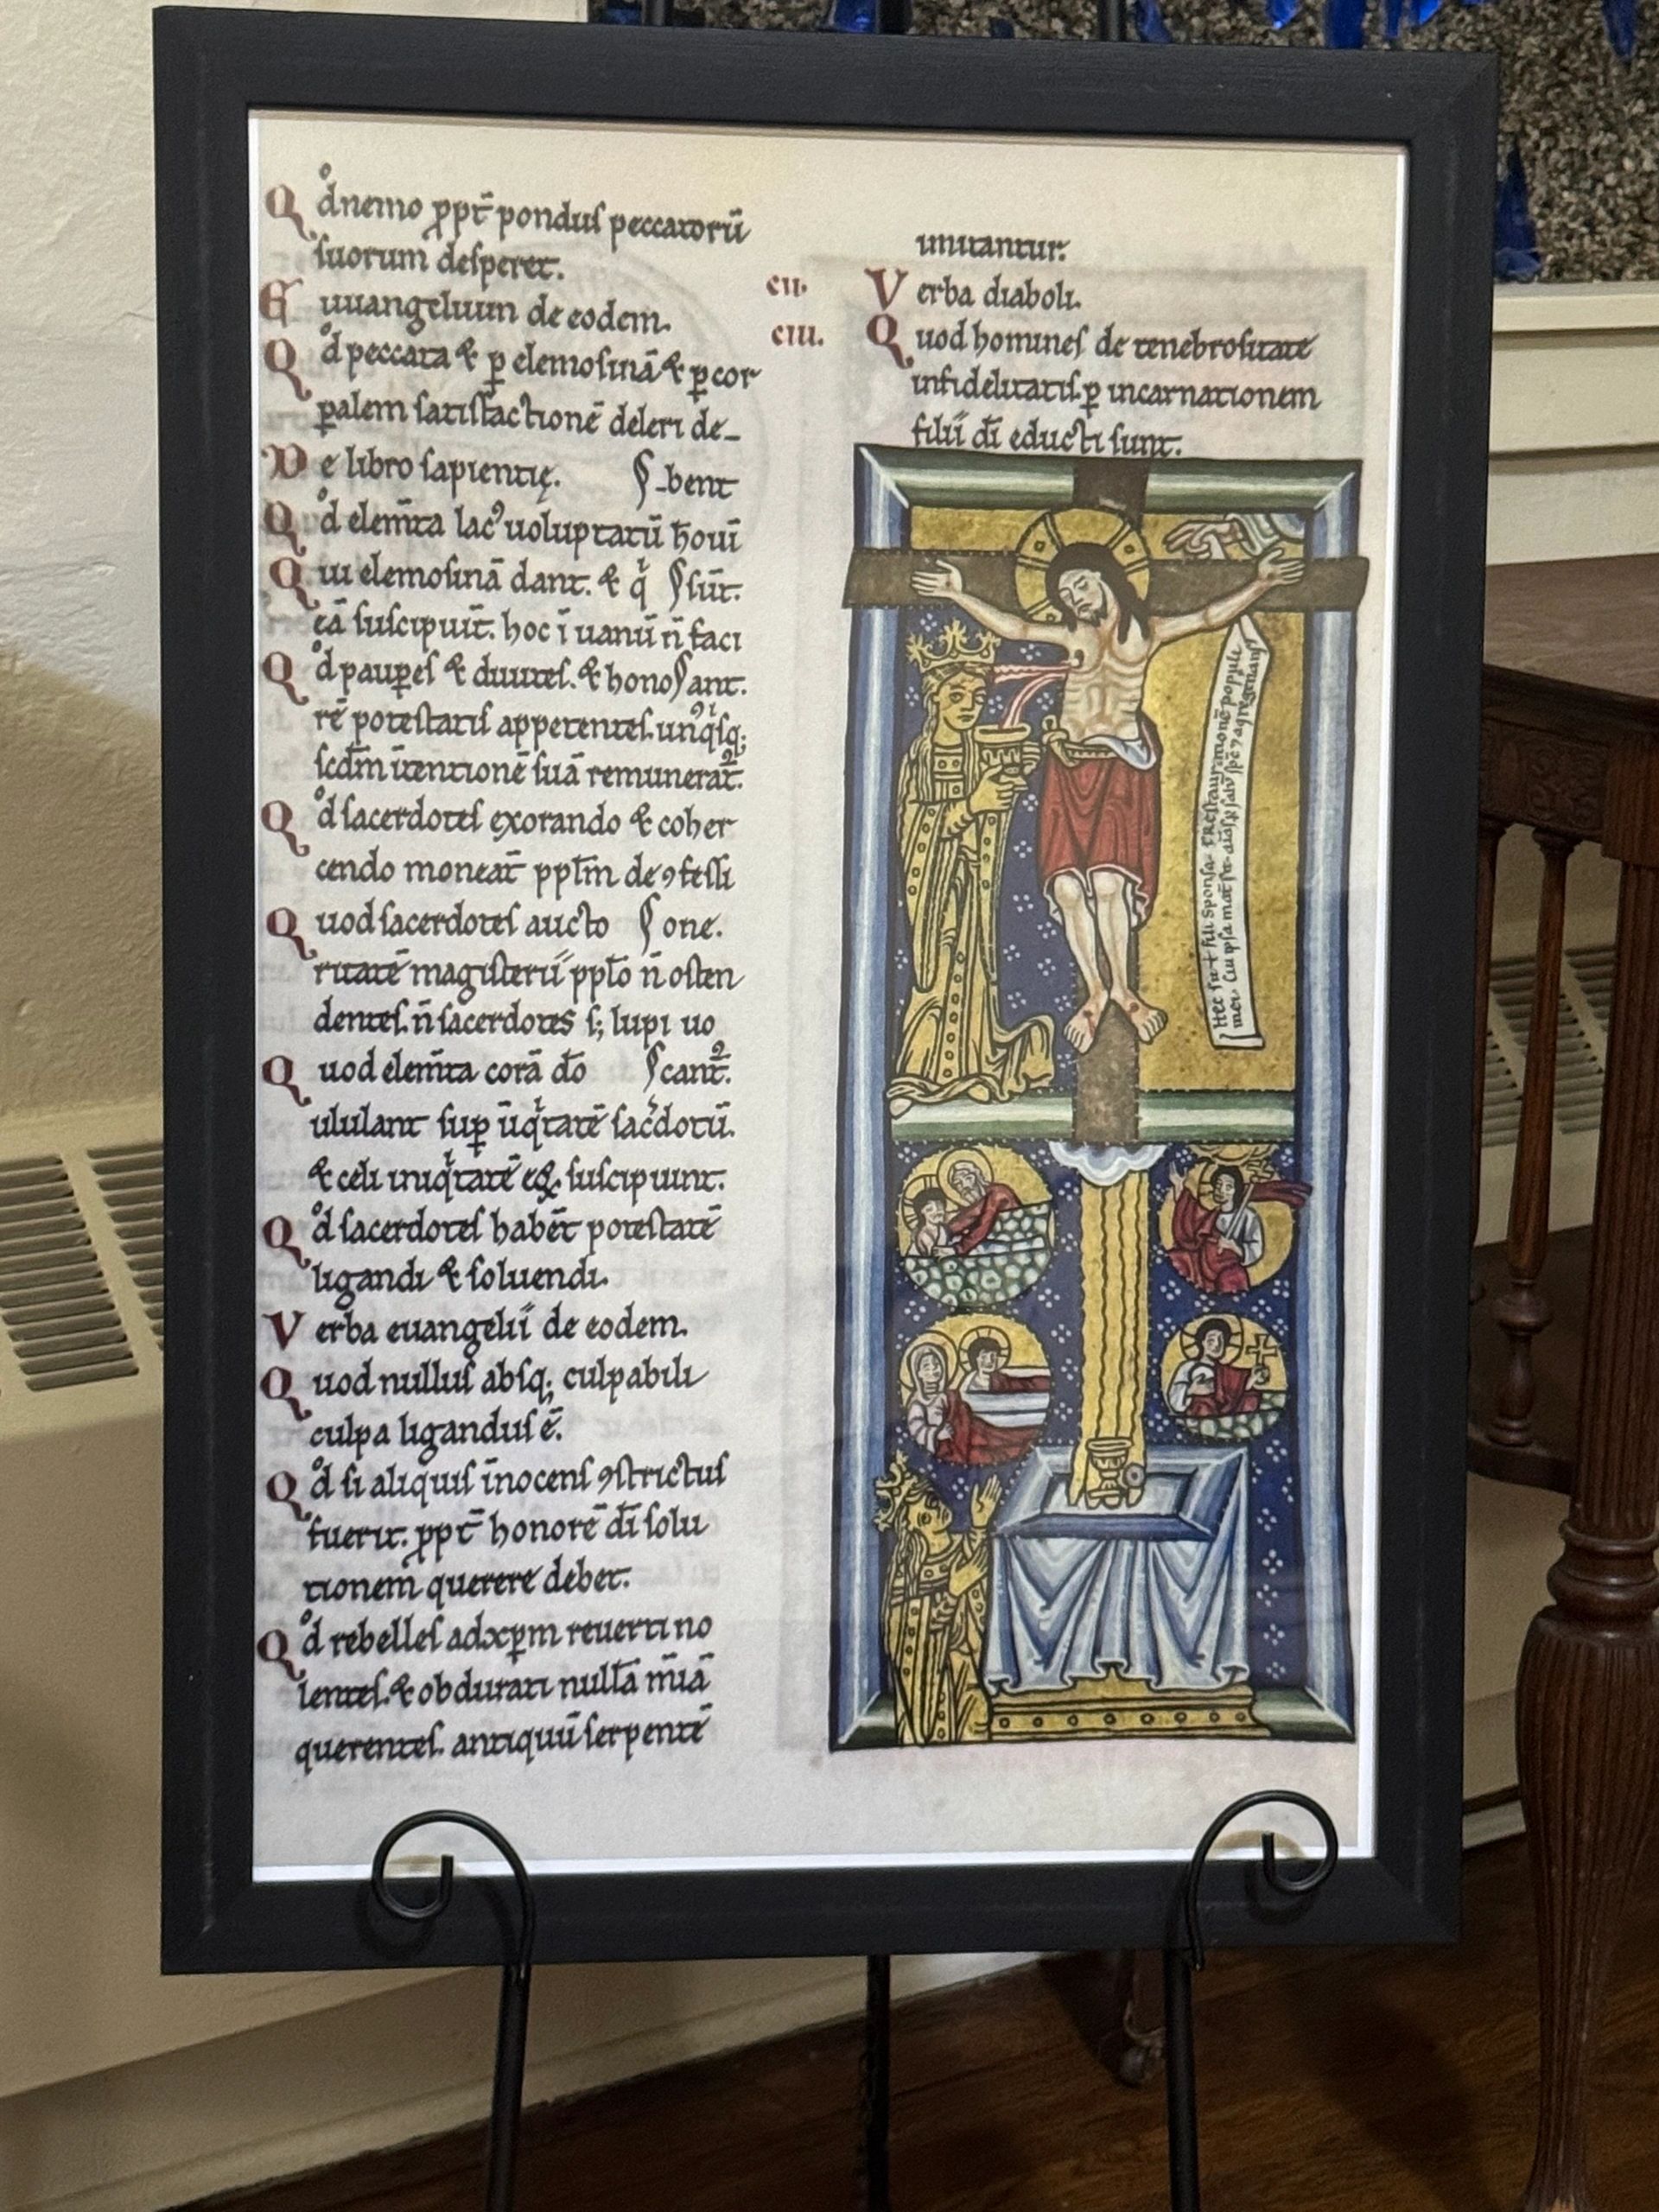 Qd nemo ꝓpt̄ pondus peccatorū
suorum desperet.
Euuangelium de eodem.
Qd peccata & ꝑ elemosinā & ꝑ cor
palem satisfactionē deleri de-
De libro sapientię. -bent
Qd elem̄ta lac' uoluptatū ho̅ui
Qui elemosinā dant. & qͥ sūt.
eā suscipiūt. hoc ī uanū n̄ faci
Qd pauꝑes & diuites. & hono ant.
rē potestatis appetentes. unꝰqͥsq;
scd̄m ītentionē suā remunerat̄.
Qd sacerdotes exorando & coher
cendo moneāt ppl̄m de ꝯfessi
Quod sacerdotes aucto one.
ritatē magisterii ppl̄o n̄ osten
dentes. n̄ sacerdotes s; lupi uo
Quod elem̄ta corā dō cant̄.
ululant suꝑ īiqͥtatē sac̄dotū.
& celi iniqͥtatē eoꝝ suscipiunt.
Qd sacerdotes habēt potestatē
ligandi & soluendi.
Verba euangelii de eodem.
Quod nullus absq; culpabili
culpa ligandus ē.
Qd si aliquis īnocens ꝯstrictus
fuerit. ꝓpt̄ honorē dī solu
tionem querere debet.
Qd rebelles ad xp̄m reuerti no
lentes. & obdurati nullā mīā
querentes. antiquū serpentē
imitantur.
cii. Verba diaboli.
ciii. Quod homines de tenebrositate
infidelitatis. ꝑ incarnationem
filii dī educti sunt.
Hec fit filii sponsa. ī restauratōnē populi
mei. Cui ipsa mat̄ sit. aīas ꝑ salū. sp̄c & aq̄ regenans